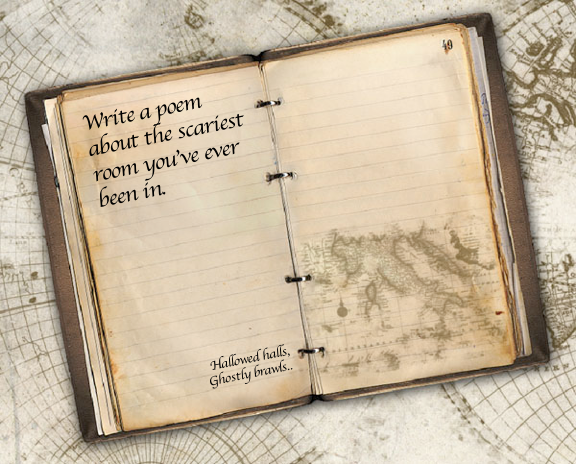 Write a poem
about the scariest
room you've ever
been in.
Hallowed halls,
Ghostly brawls..
49